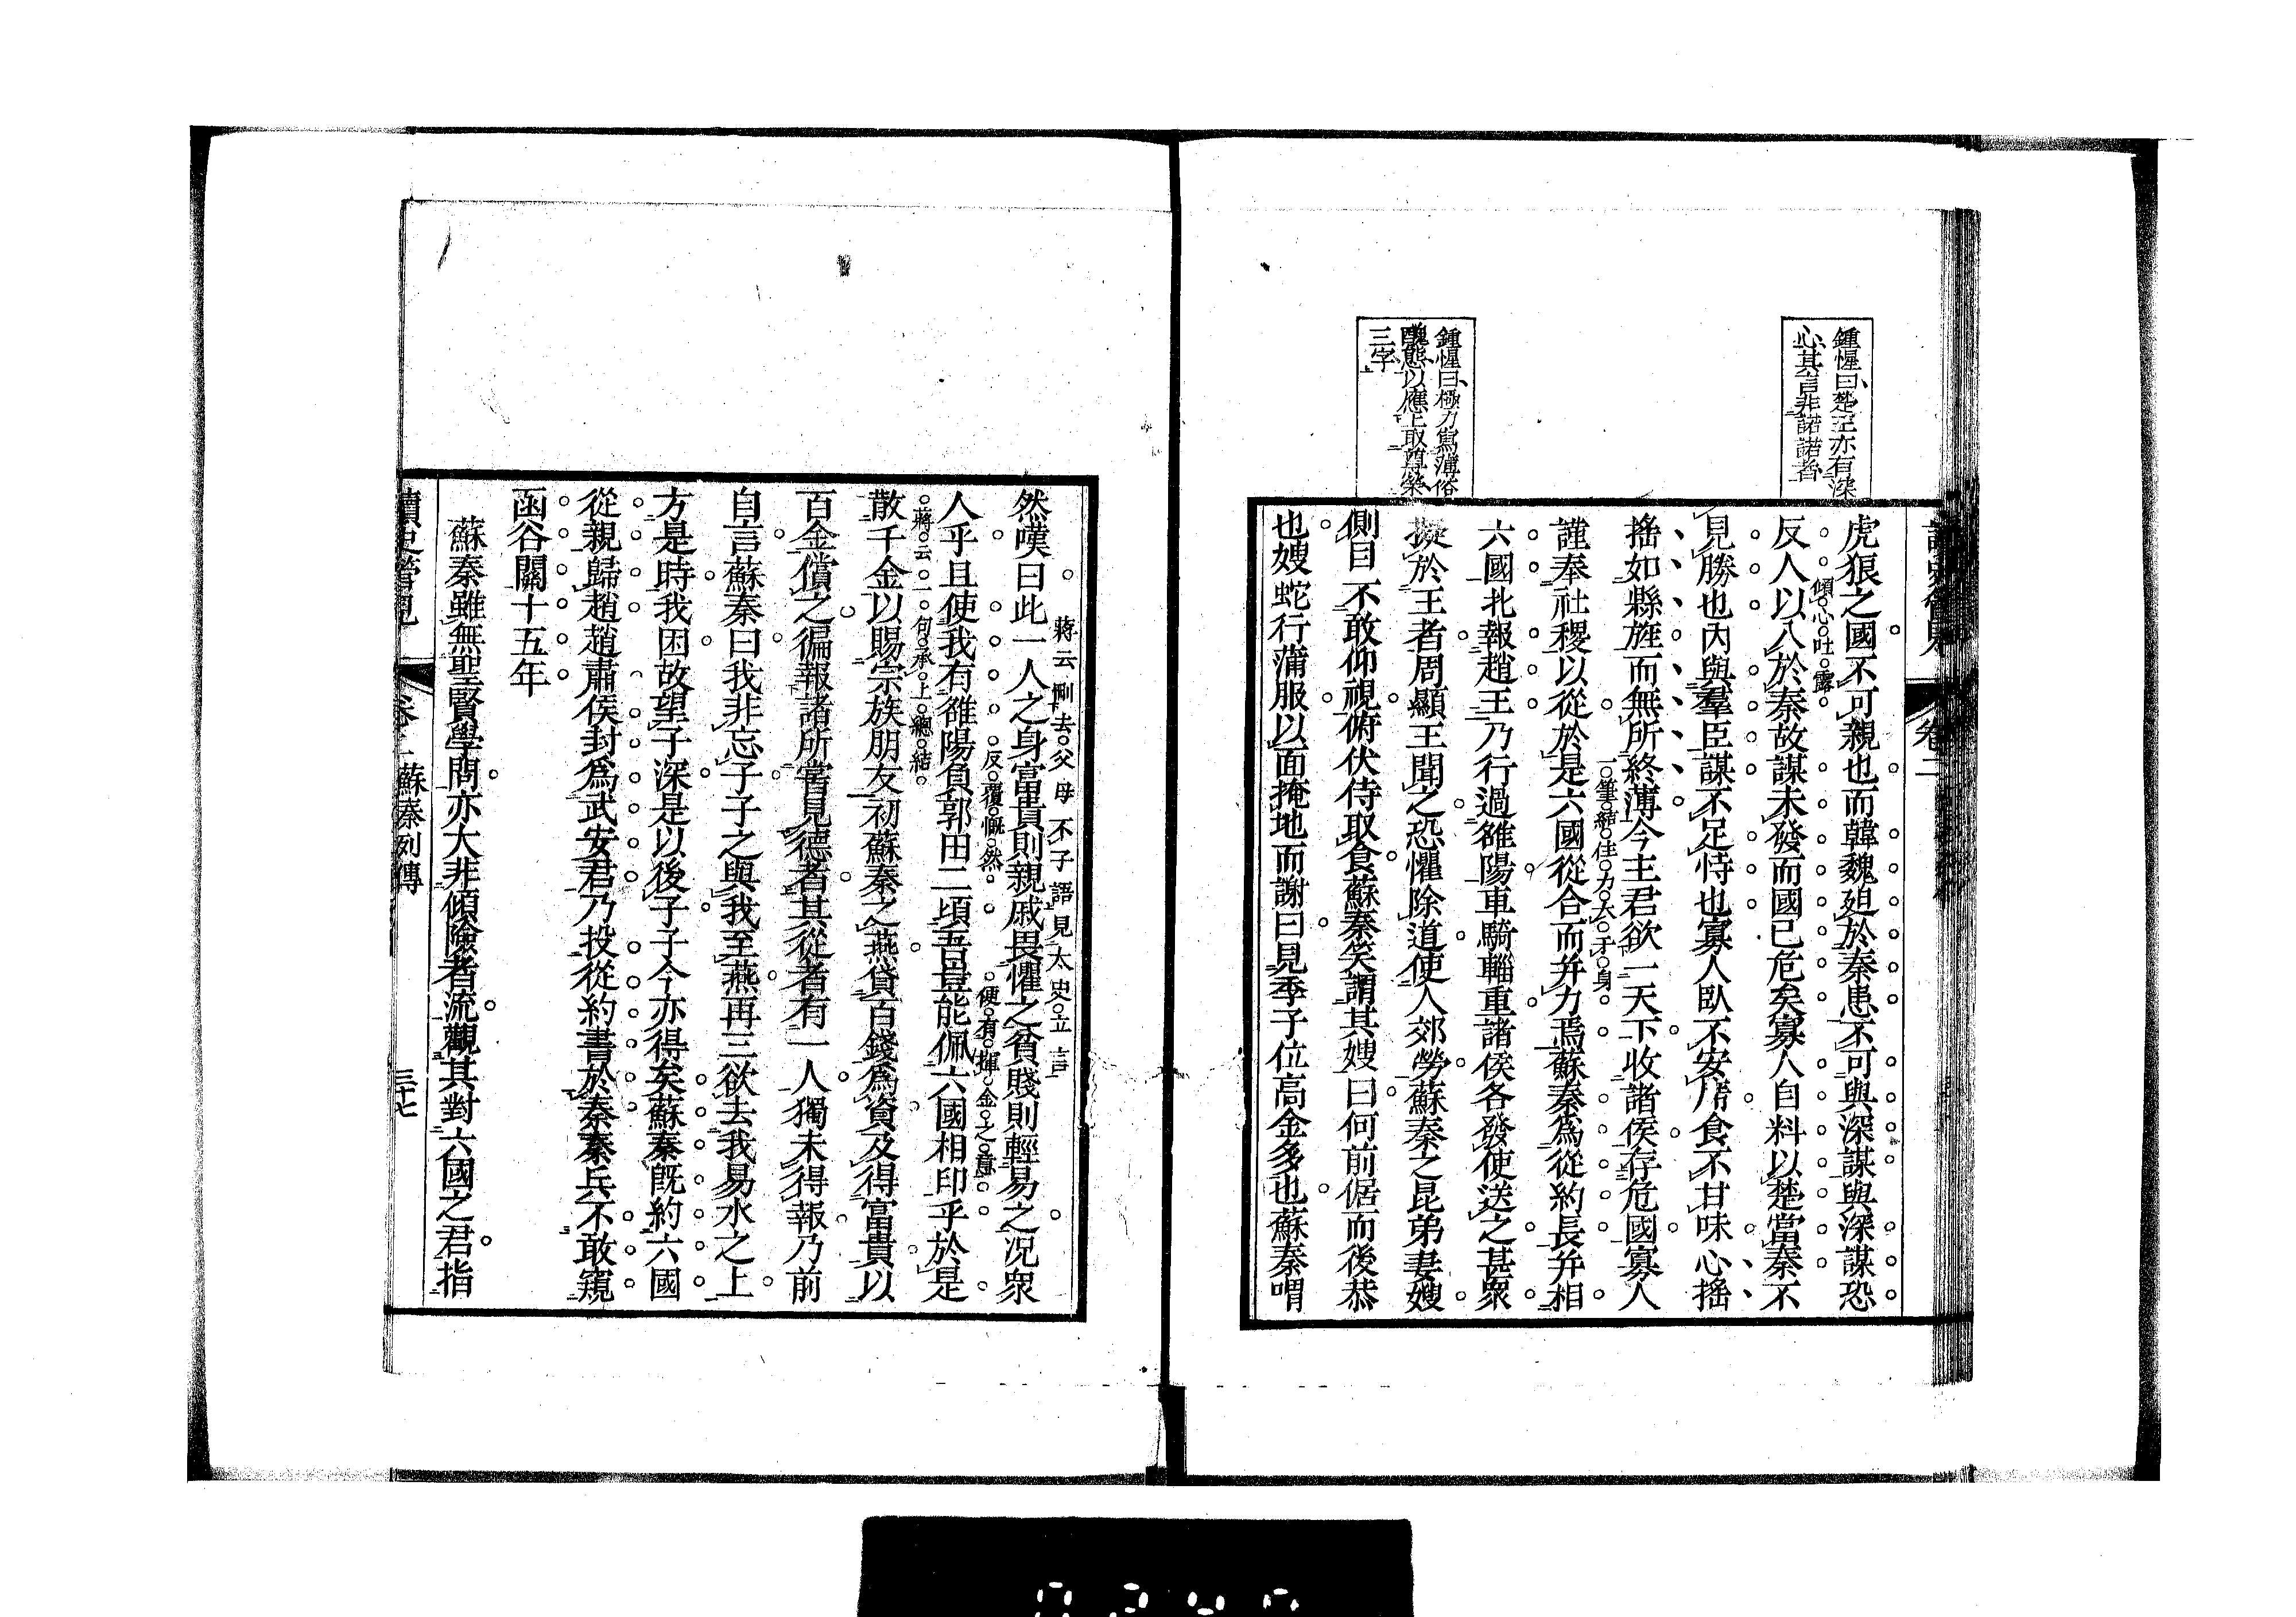 鍾惺曰楚王亦有深
心其言非諾諾者
鍾惺曰極力寫薄俗
醜態以應上取尊榮
三字
讀史管見
卷二
虎狼之國不可親也而韓魏廹於秦患不可與深謀與深謀恐
傾心吐露
反人以入於秦故謀未發而國已危矣寡人自料以楚當秦不
見勝也內與羣臣謀不足恃也寡人臥不安席食不甘味心搖
搖如縣旌而無所終薄今主君欲一天下收諸侯存危國寡人
一筆結住力大於身
謹奉社稷以從於是六國從合而并力焉蘇秦為從約長并相
六國北報趙王乃行過雒陽車騎輜重諸侯各發使送之甚衆
擬於王者周顯王聞之恐懼除道使人郊勞蘇秦之昆弟妻嫂
側目不敢仰視俯伏侍取食蘇秦笑謂其嫂曰何前倨而後恭
也嫂蛇行蒲服以面掩地而謝曰見季子位高金多也蘇秦喟
蔣云刪去父母不子語見太史立言
然嘆曰此一人之身富貴則親戚畏懼之貧賤則輕易之况衆
反覆慨然
便有揮金之意
人乎且使我有雒陽負郭田二頃吾豈能佩六國相印乎於是
蔣云一句承上總結
散千金以賜宗族朋友初蘇秦之燕貸百錢為資及得富貴以
百金償之徧報諸所嘗見德者其從者有一人獨未得報乃前
自言蘇秦曰我非忘子子之與我至燕再三欲去我易水之上
方是時我困故望子深是以後子子今亦得矣蘇秦旣約六國
從親歸趙趙肅侯封為武安君乃投從約書於秦秦兵不敢窺
函谷關十五年
蘇秦雖無聖賢學問亦大非傾險者流觀其對六國之君指
讀史管見
卷二
蘇秦列傳
三十七